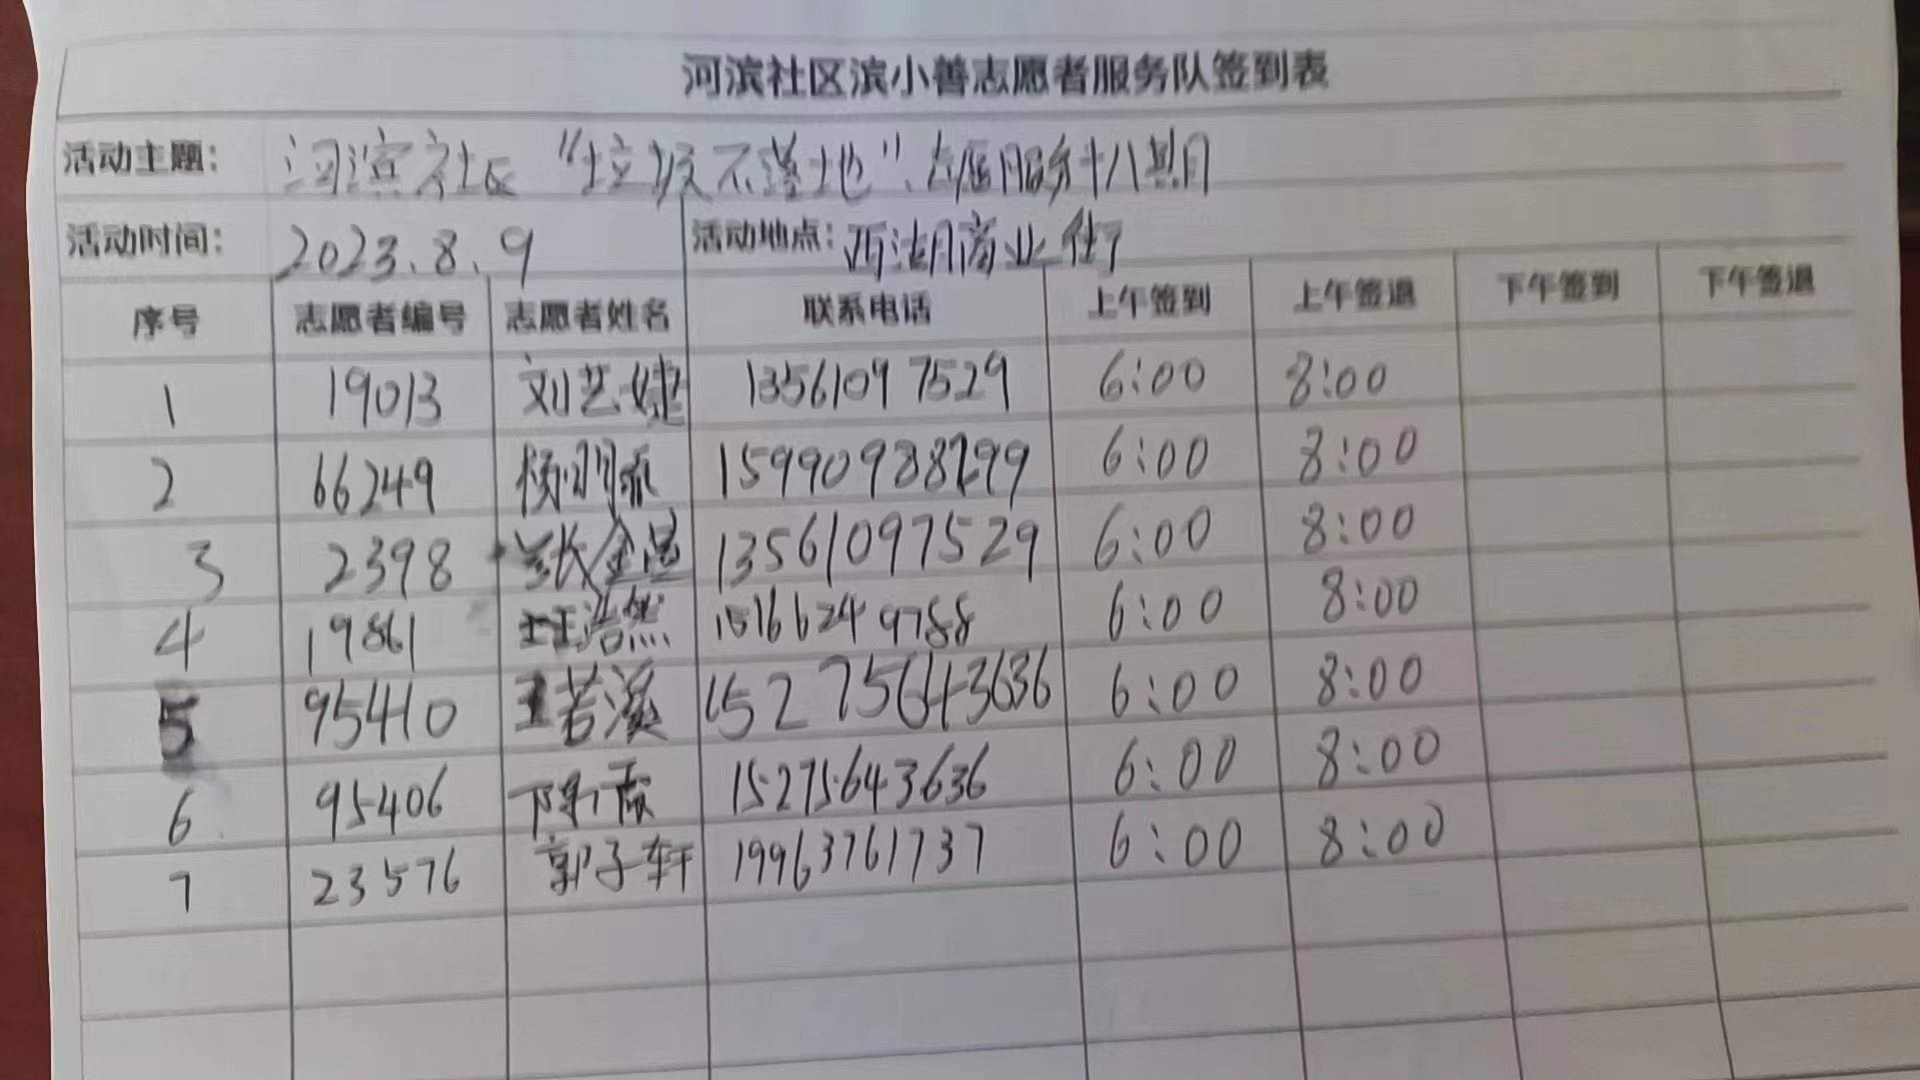 河滨社区滨小善志愿者服务队签到表
活动主题： 河滨社区“垃圾不落地”志愿服务十八期
活动时间： 2023.8.9 活动地点： 西湖商业街
序号 志愿者编号 志愿者姓名 联系电话 上午签到 上午签退 下午签到 下午签退
1 19013 刘艺婕 13561097529 6:00 8:00
2 66249 15990988299 6:00 8:00
3 2398 13561097529 6:00 8:00
4 19861 王浩然 15166249788 6:00 8:00
5 95410 王若溪 15275643636 6:00 8:00
6 95406 15275643636 6:00 8:00
7 23576 郭子轩 19963761737 6:00 8:00